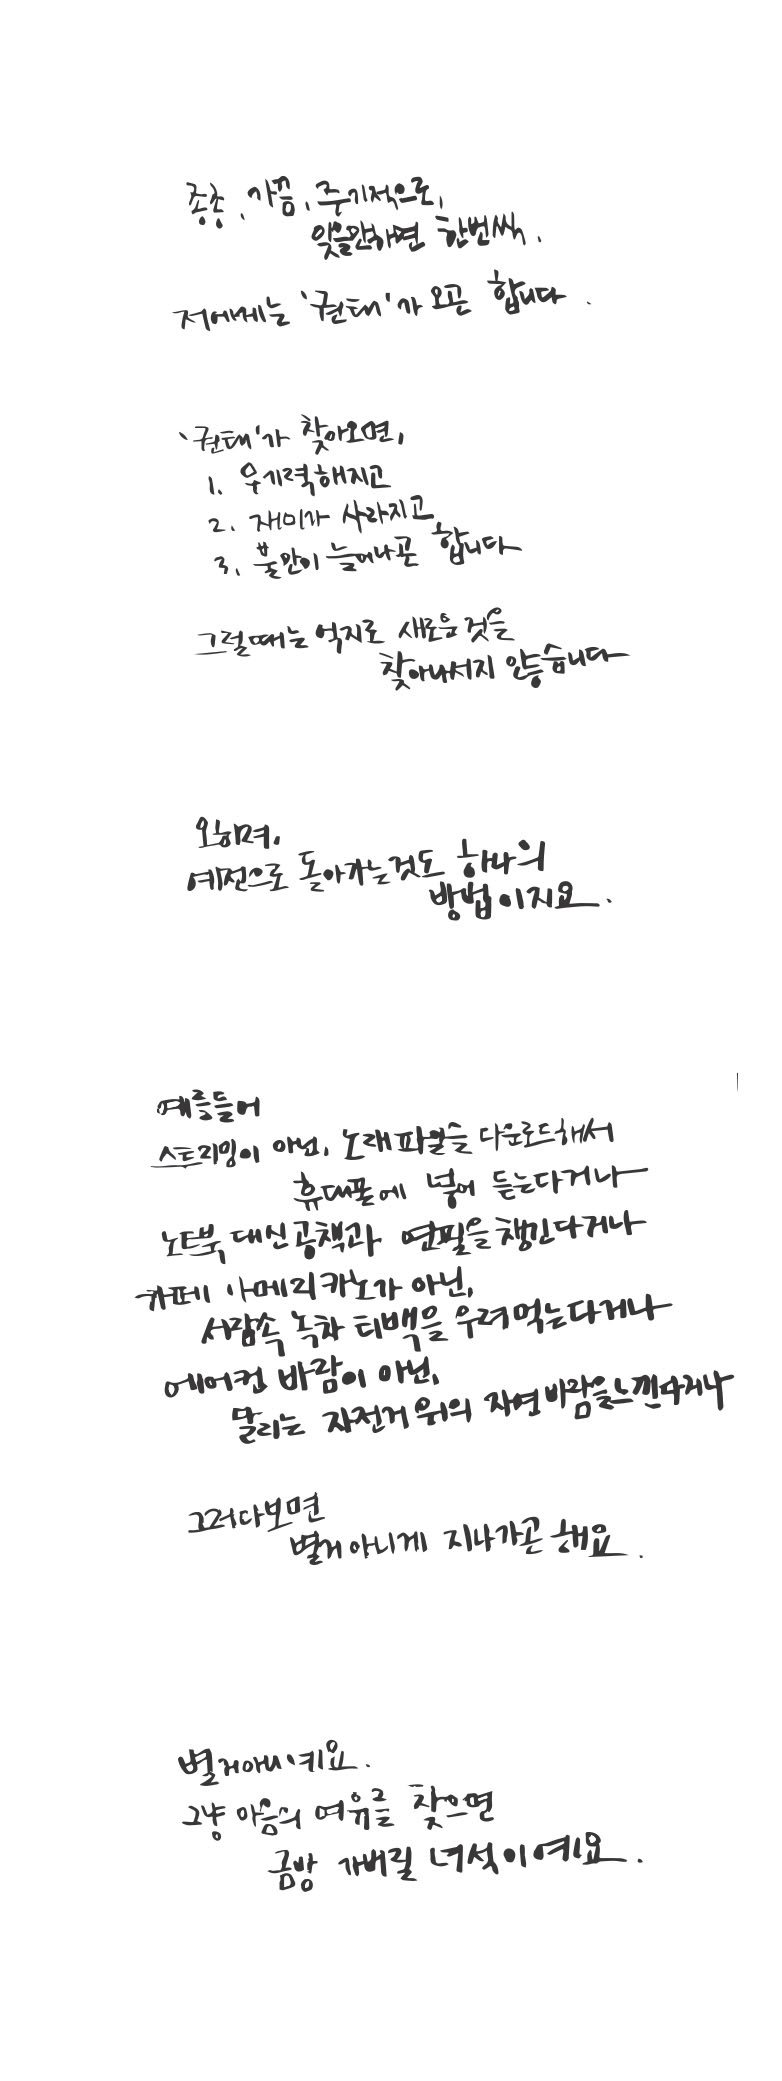 종종, 가끔, 주기적으로,
잊을만하면 한번씩.
저에게는 '권태'가 오곤 합니다.
'권태'가 찾아오면,
1. 무기력해지고
2. 재미가 사라지고
3. 불만이 늘어나곤 합니다
그럴때는 억지로 새로운것을
찾아나서지 않습니다
오히려,
예전으로 돌아가는것도 하나의
방법이지요.
예를들어
스트리밍이 아닌, 노래파일을 다운로드해서
휴대폰에 넣어 듣는다거나
노트북 대신 공책과 연필을 챙긴다거나
카페 아메리카노가 아닌,
서랍속 녹차 티백을 우려먹는다거나
에어컨 바람이 아닌,
달리는 자전거 위의 자연바람을느낀다거나
그러다보면
별거아니게 지나가곤 해요.
별거아니예요.
그냥 마음의 여유를 찾으면
금방 가버릴 녀석이예요.